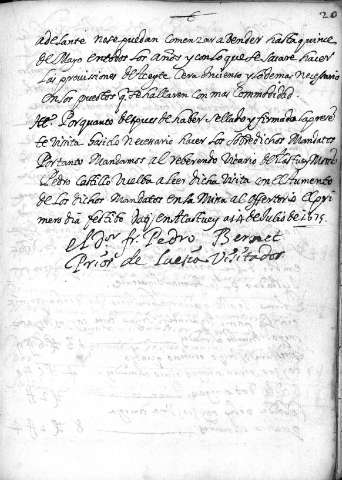 20
adelante no se puedan comenzar a bender hasta quince
de Mayo en todos los años y con lo que se sacare hacer
las provissiones de aceyte cera Inciensso y lo demas necessario
en los puestos q̃ se hallaren con mas commodidad.
Ittẽ Por quanto despues de haber sellado y firmado la presẽ
te visita ha sido necesario hacer los sobredichos Mandatos
Por tanto Mandamos al Reberendo Vicario de Lastuey Mossen
Pedro Castillo vuelba a leer dicha visita con el augmento
de los dichos Mandatos en la Missa al ofertorio el pri
mero dia festibo Dat. en Alastuey a 4 de Julio de 1675.
el Dor fr. Pedro Bernet
Prior de Visitador